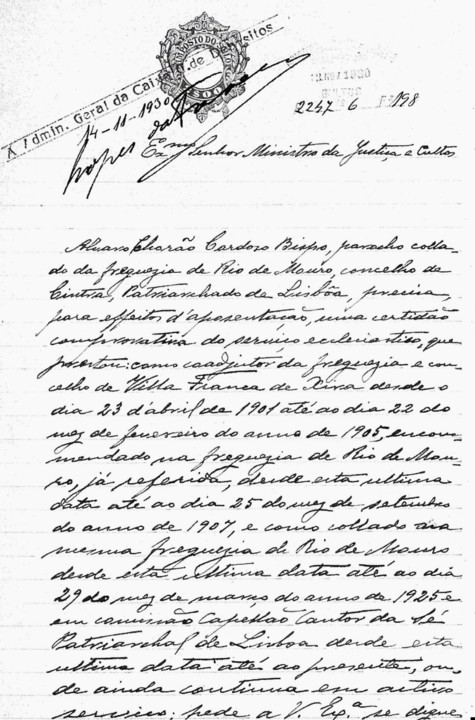 IMPOSTO DO
À Admin. Geral da Caixa de Depositos
14-11-1930
Lopes da
2247 6 F 198
Exmº Senhor Ministro da Justiça e Cultos
Alvaro Charão Cardoso Bispo, parocho colla-
do da freguezia de Rio de Mouro, concelho de
Cintra, Patriarchado de Lisbôa, precisa,
para effeitos d'aposentação, uma certidão
comprovativa do serviço ecclesiastico, que
prestou: como coadjutor da freguezia e con-
celho de Villa Franca de Xira desde o
dia 23 d'abril de 1901 até ao dia 22 do
mez de fevereiro do anno de 1905, encom-
mendado na freguezia de Rio de Mou-
ro, já referida, desde esta ultima
data até ao dia 25 do mez de setembro
do anno de 1907, e como collado na
mesma freguezia de Rio de Mouro
desde esta ultima data até ao dia
29 do mez de março do anno de 1925 e
em comissão Capellão Cantor da Sé
Patriarchal de Lisboa desde esta
ultima data até ao presente, on-
de ainda continua em activo
serviço; pede a V. Exª se digne